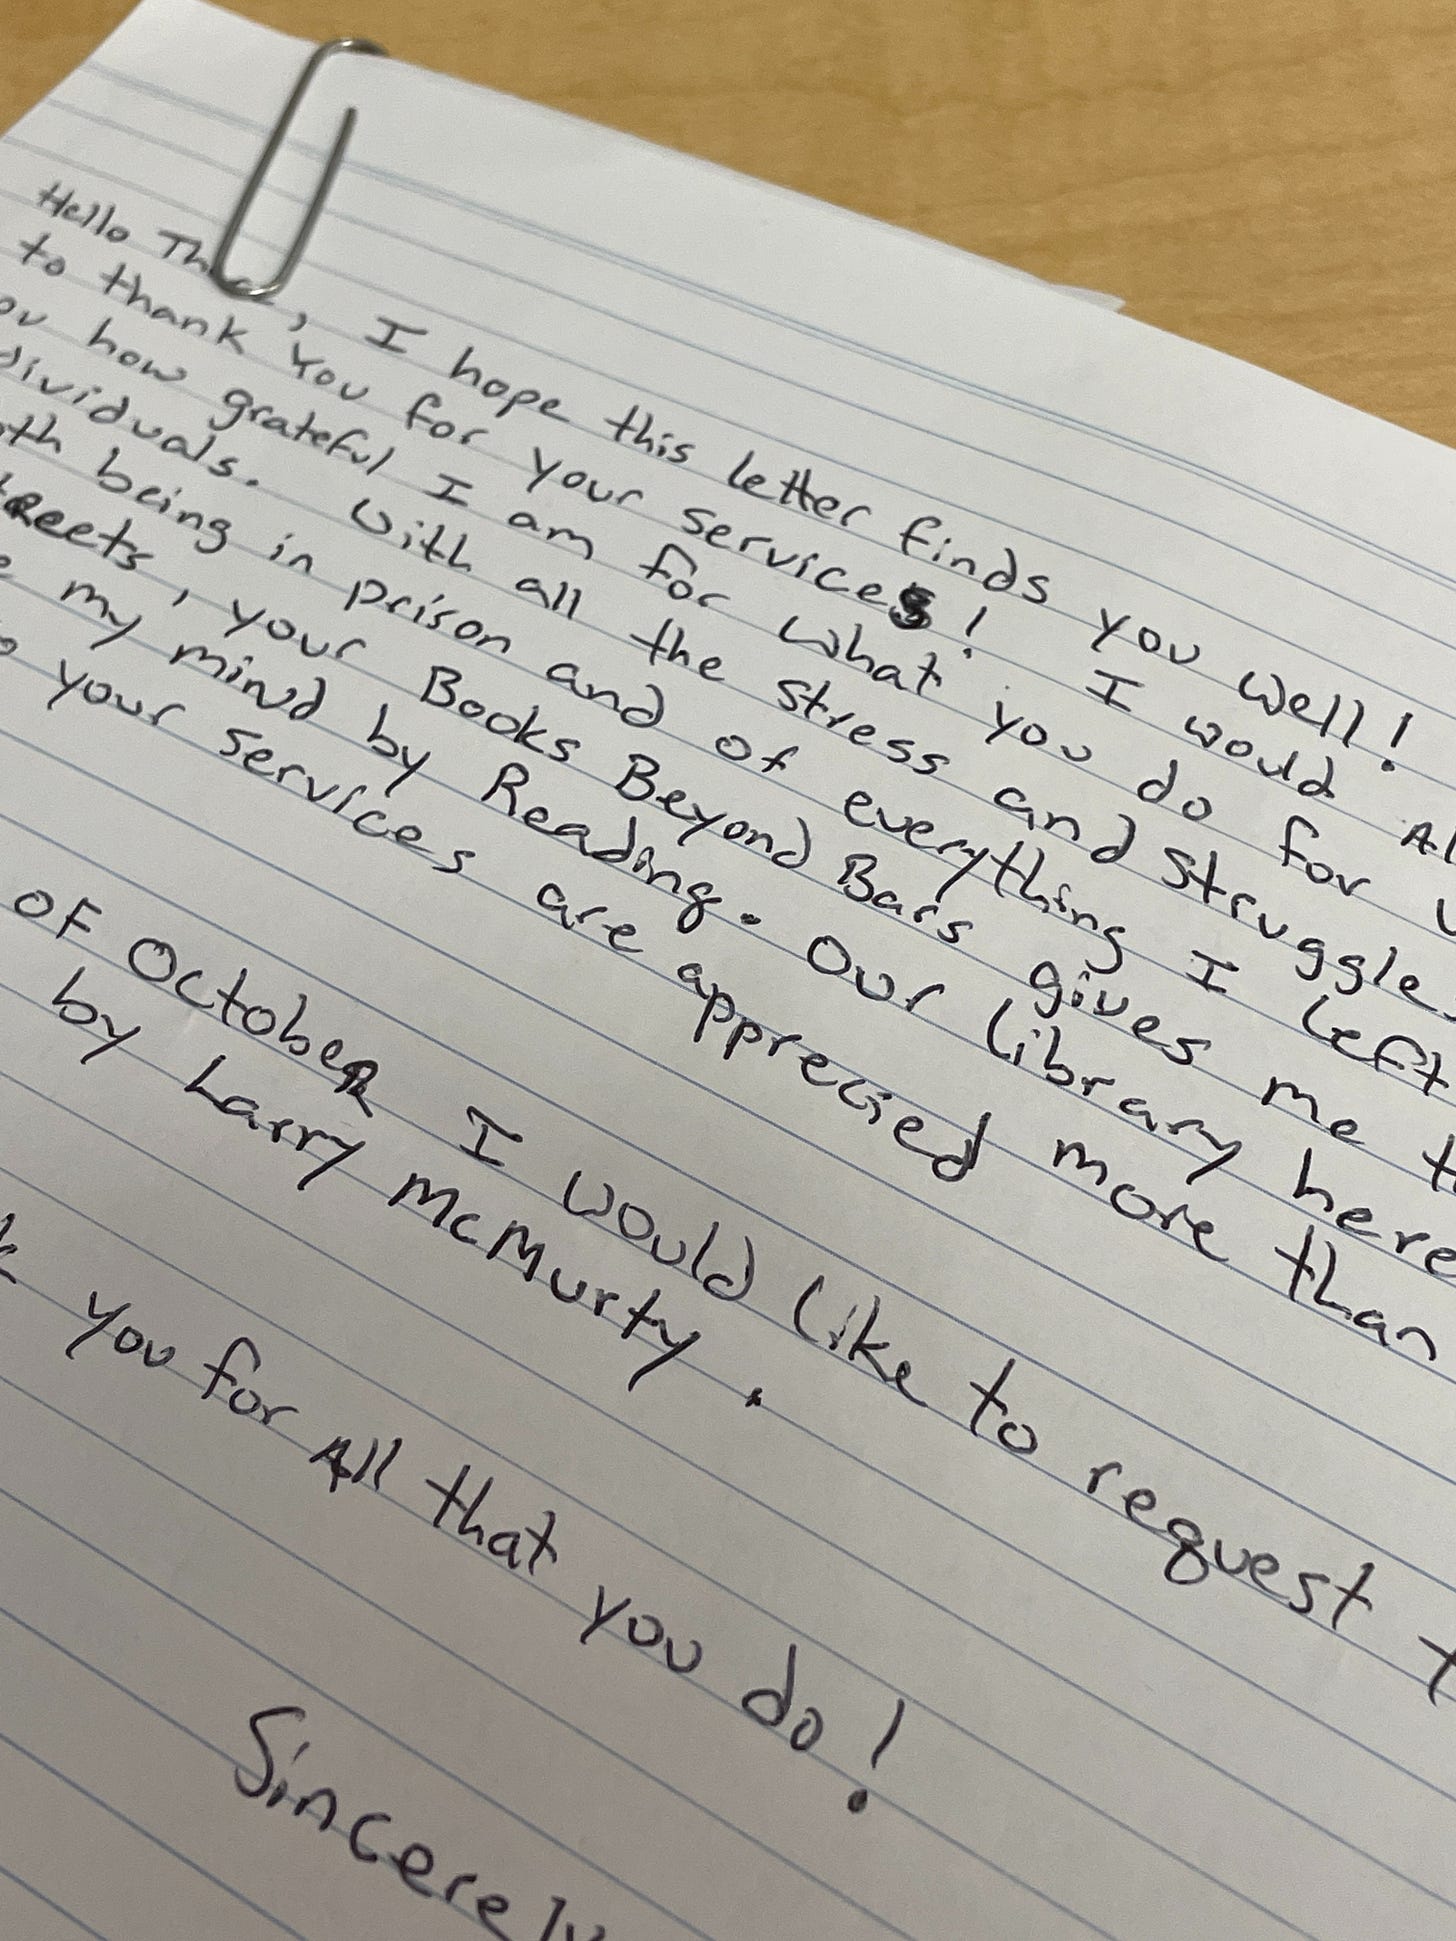 Hello There, I hope this letter finds you well!
to thank you for your services! I would Al
ou how grateful I am for what you do for
dividuals. With all the stress and struggle
th being in prison and of everything I left
treets, your Books Beyond Bars gives me t
e my mind by Reading. Our library here
o your services are apprecied more than
of October I would like to request t
by Larry McMurty.
k you for All that you do!
Sincerely